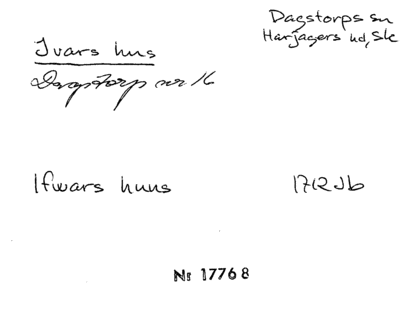 Dagstorps sn
Harjagers hd, Sk
Ivars hus
Dagstorp nr 16
Ifwars huus 1712 Jb
Nr 17768